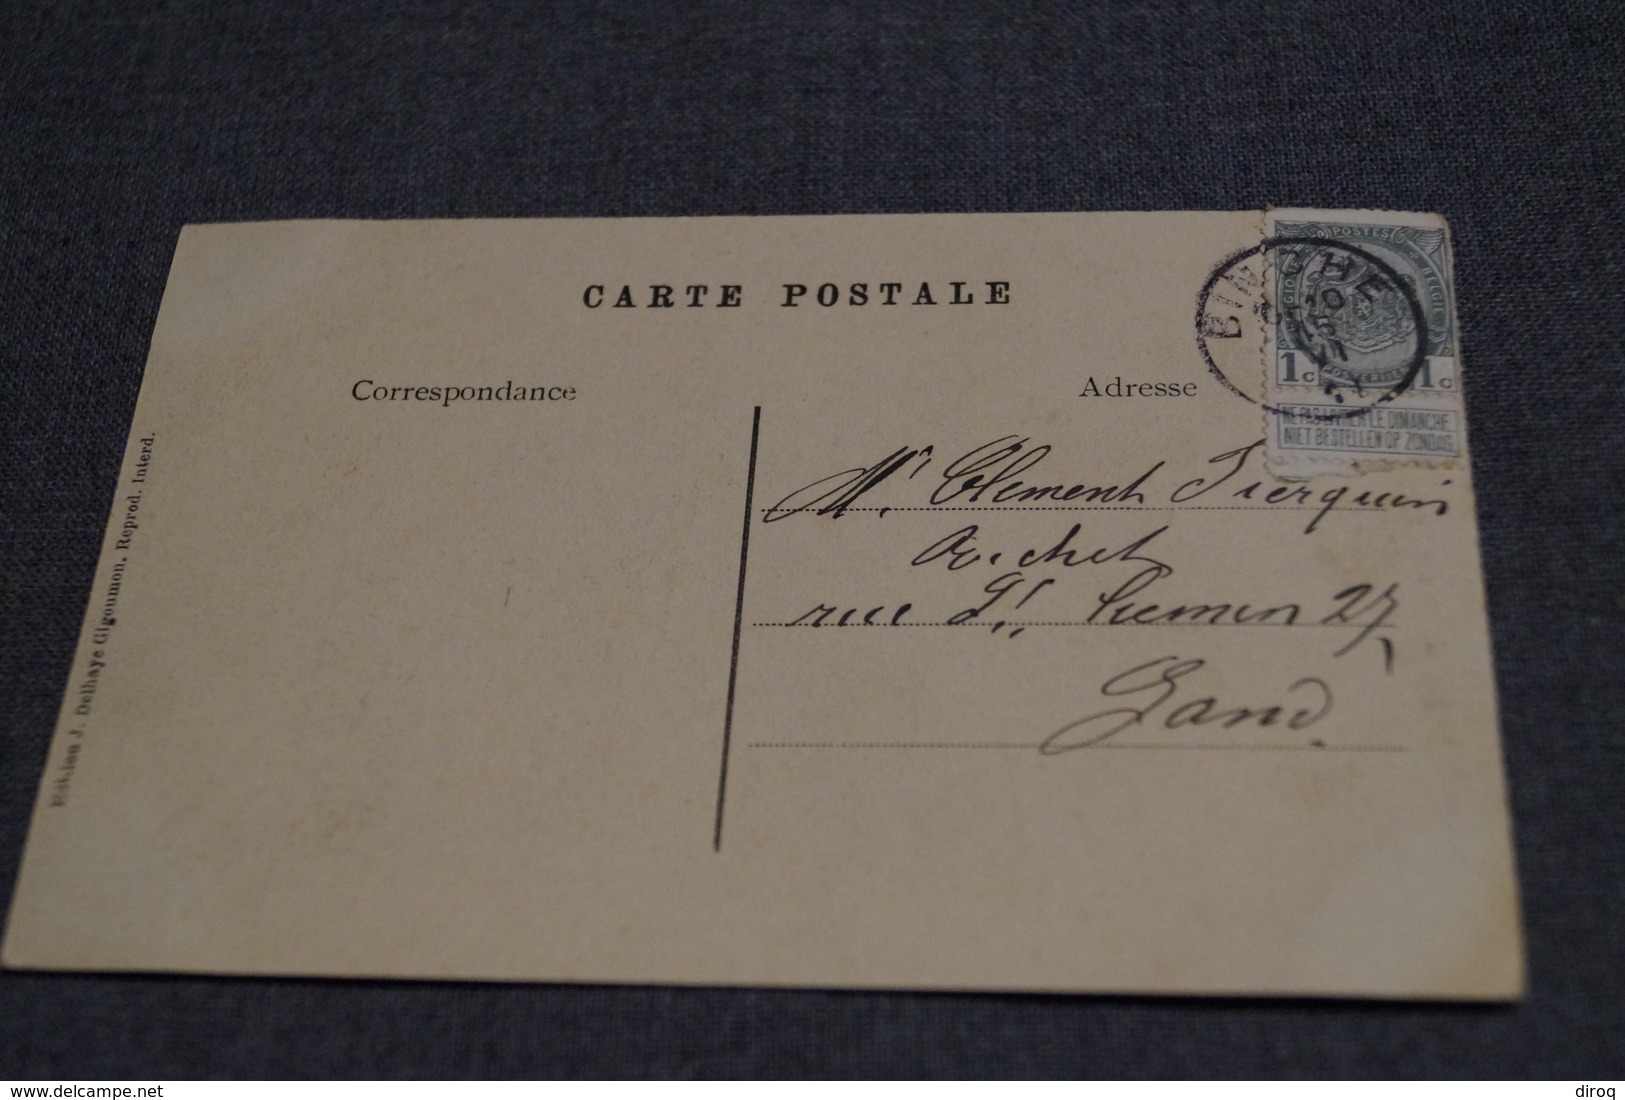 CARTE POSTALE
Correspondance
Adresse
BINCHE
10
15
VII
POSTES
BELGIE
1c 1c
NE PAS LIVRER LE DIMANCHE
NIET BESTELLEN OP ZONDAG
Mr. Clement Tierquin
rue St.
27
Gand.
Edition J. Delhaye Gigoumon. Reprod. Interd.
delcampe.net
diroq